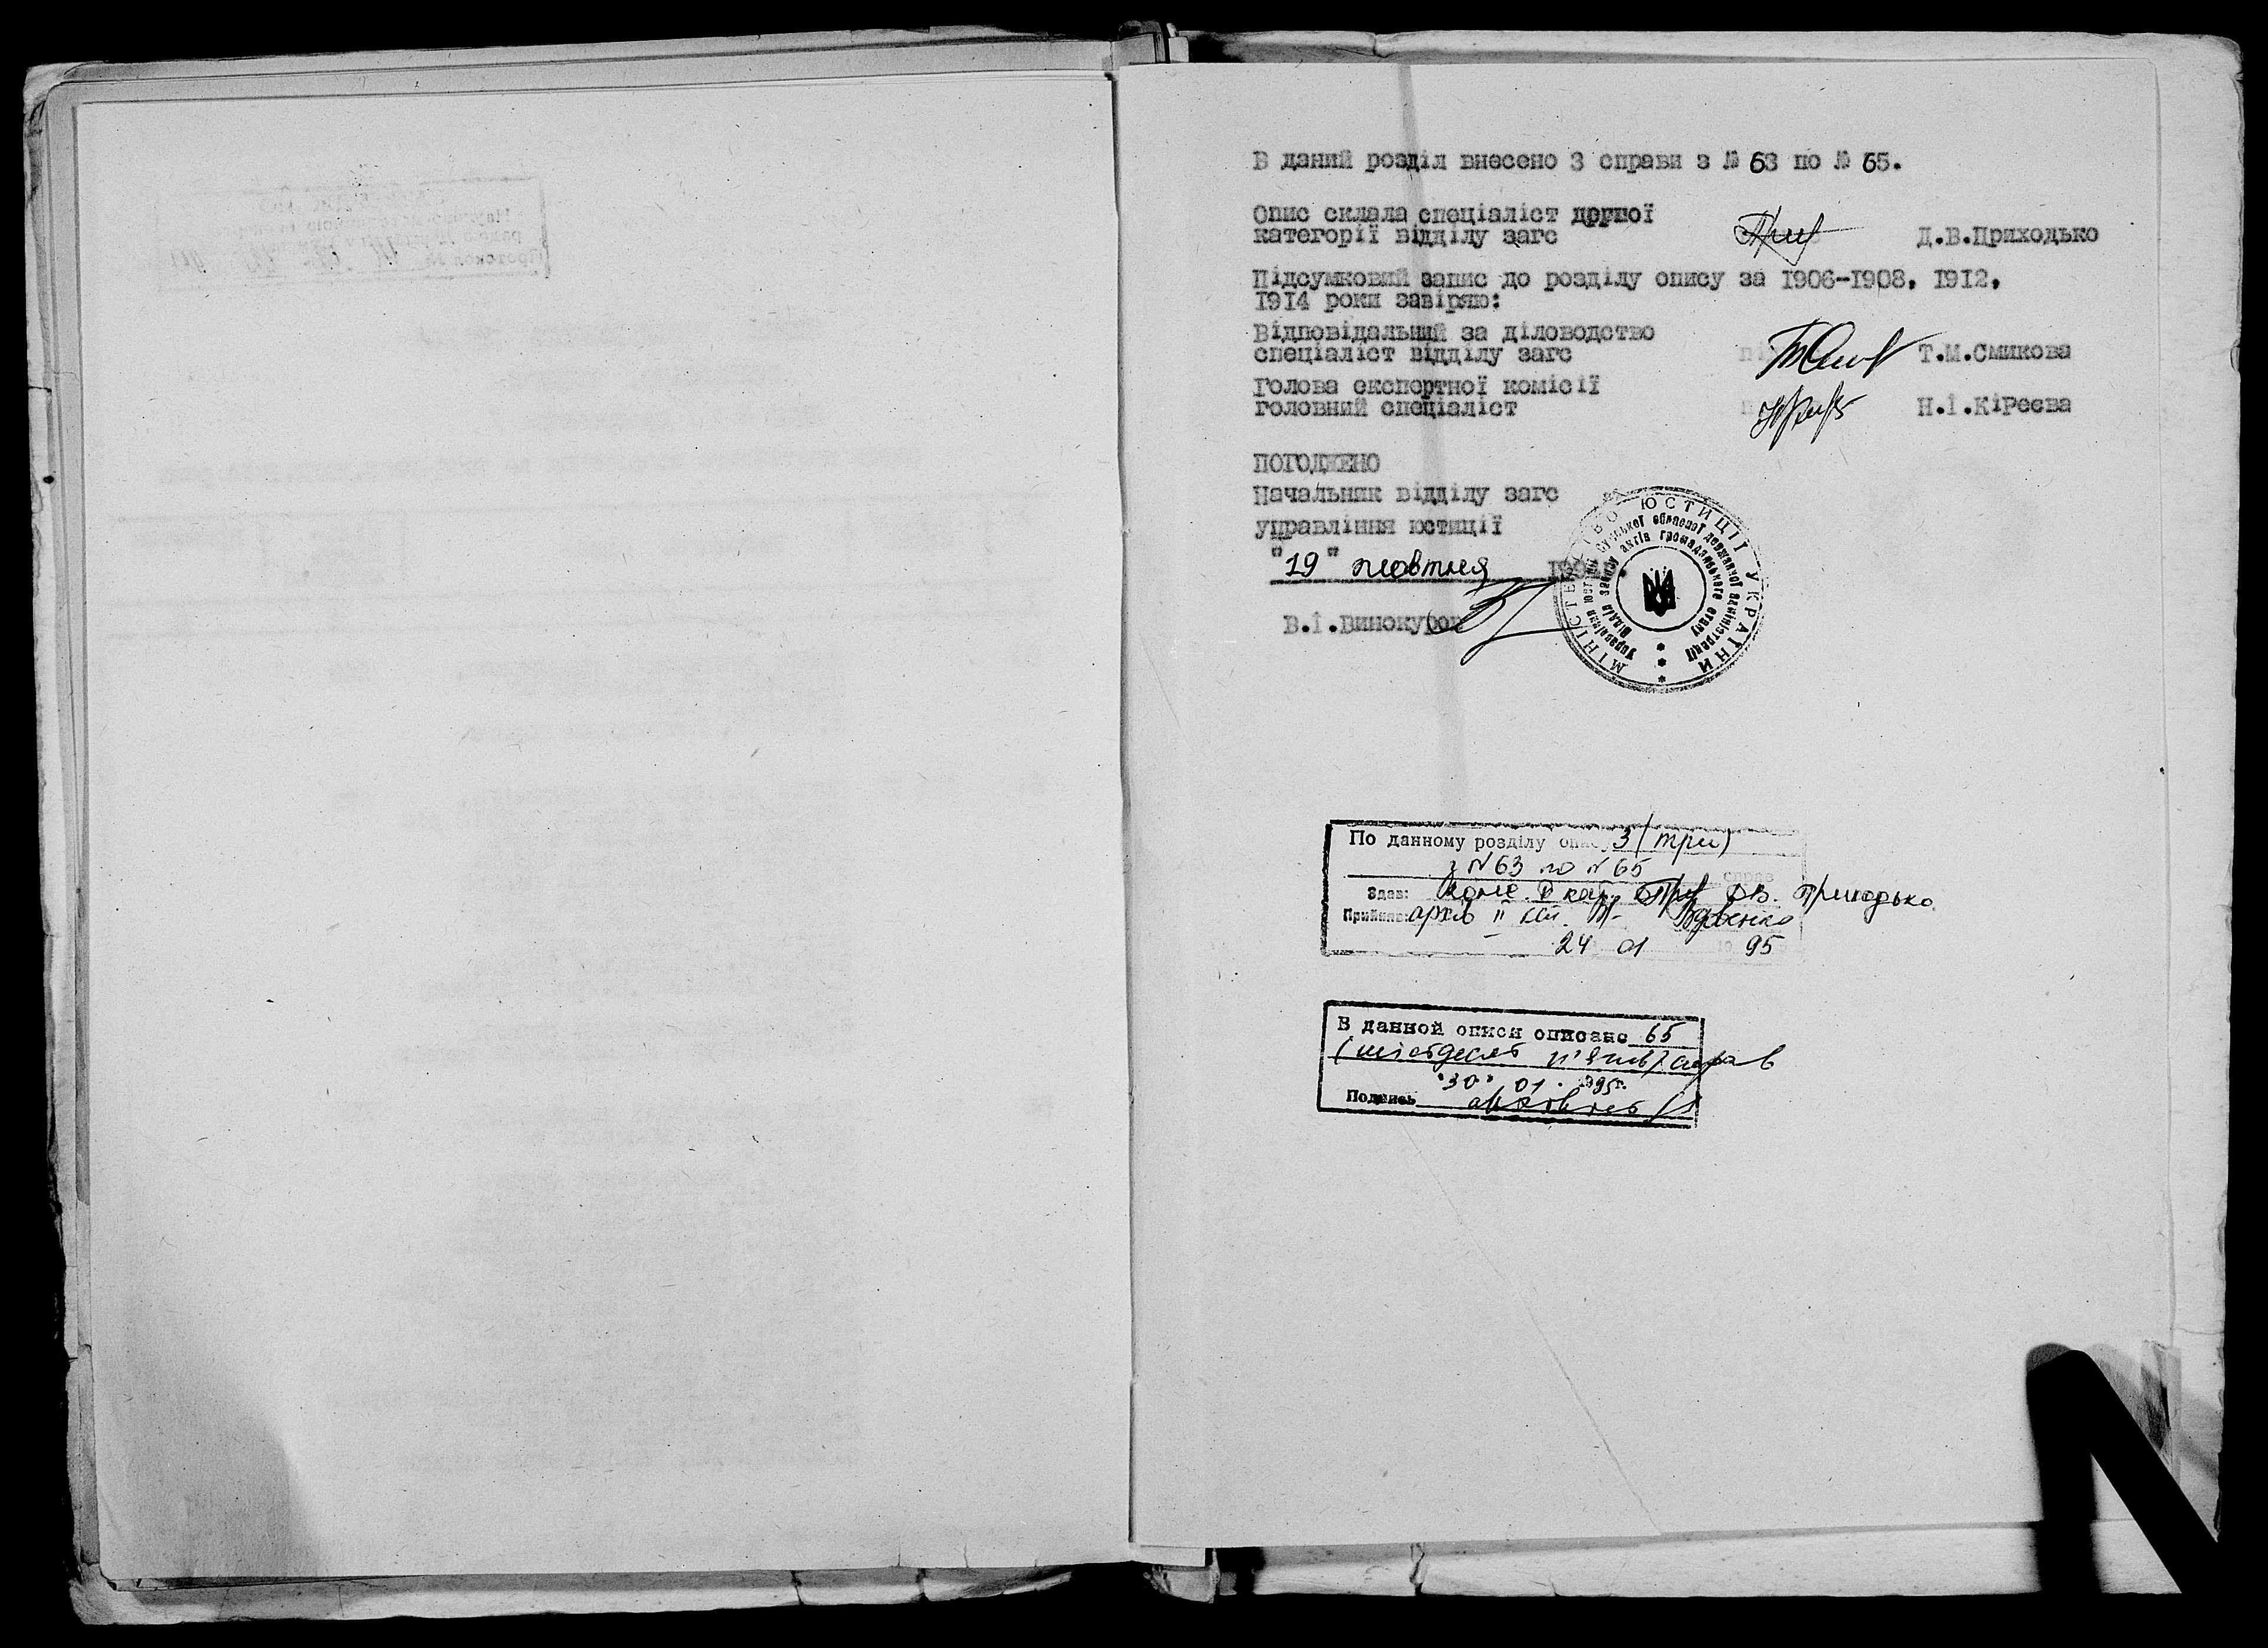 В даний розділ внесено 3 справи з № 63 по № 65.
Опис склала спеціаліст другої
категорії відділу загс Д.В.Приходько
Підсумковий запис до розділу опису за 1906-1908, 1912,
1914 роки завіряю:
Відповідальний за діловодство
спеціаліст відділу загс Т.М.Смикова
Голова експертної комісії
головний спеціаліст Н.І.Кіреєва
ПОГОДЖЕНО
Начальник відділу загс
управління юстиції
"19" жовтня
В.І.Винокуров
МІНІСТЕРСТВО ЮСТИЦІЇ УКРАЇНИ
Управління юстиції Сумської обласної державної адміністрації
Відділ запису актів громадянського стану
По данному розділу опису 3 (три)
з №63 по №65 справ
Здав: Д.В. Приходько
Прийняв: архів II кат.
24 01 1995
В данной описи описано 65
(шістдесят п'ять) справ
"30" 01. 1995г.
Подпись